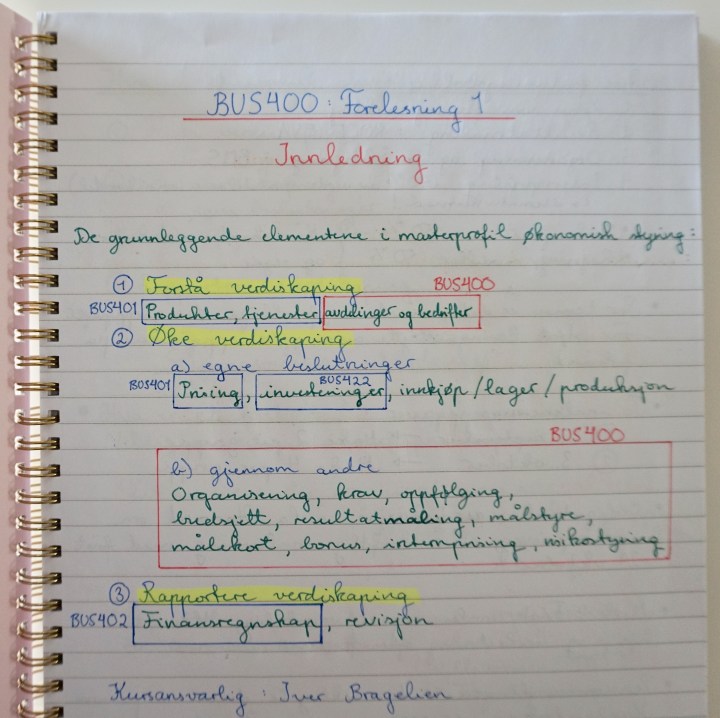 BUS400: Forelesning 1
Innledning
De grunnleggende elementene i masterprofil økonomisk styring:
① Forstå verdiskaping BUS400
BUS401 Produkter, tjenester avdelinger og bedrifter
② Øke verdiskaping
a) egne beslutninger
BUS401 Prising, investeringer, innkjøp/lager/produksjon
BUS422
BUS400
b) gjennom andre
Organisering, krav, oppfølging,
budsjett, resultatmåling, målstyre,
målekort, bonus, internprising, risikostyring
③ Rapportere verdiskaping
BUS402 Finansregnskap, revisjon
Kursansvarlig: Iver Bragelien